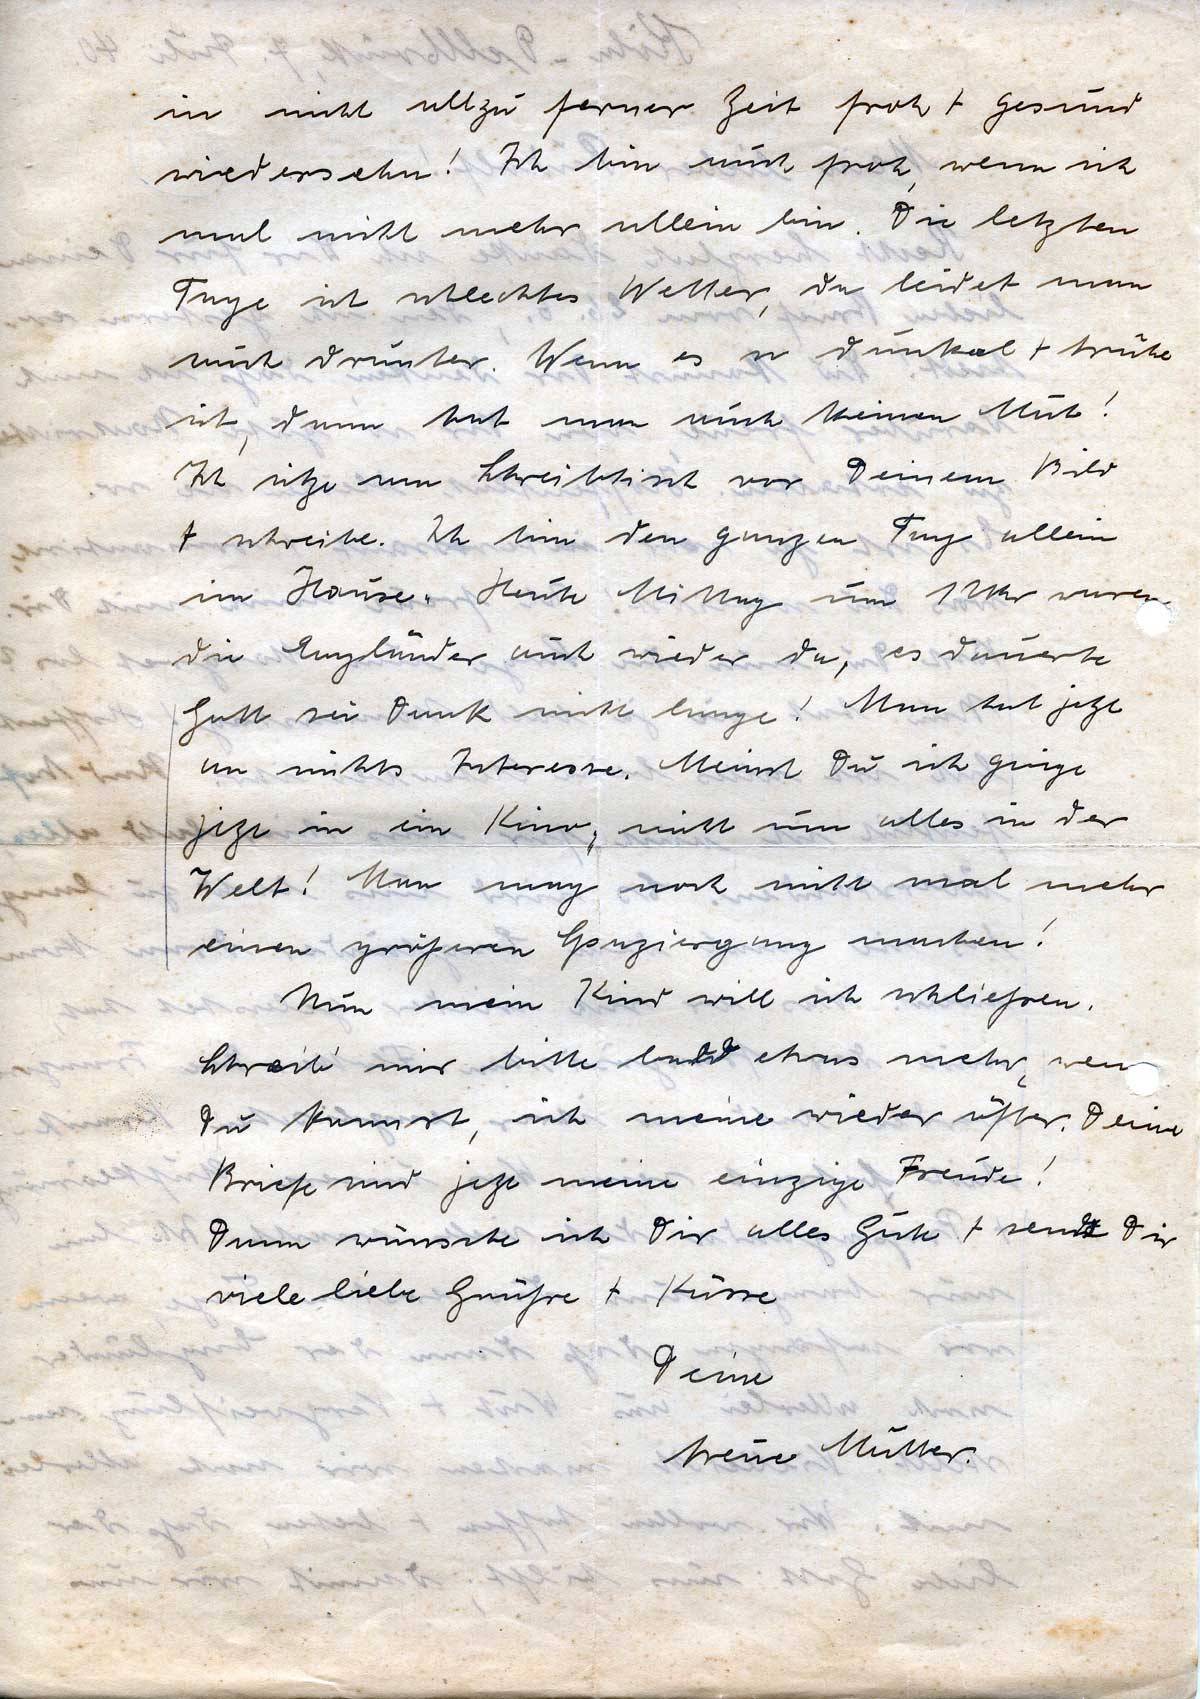 in nicht allzu ferner Zeit froh + gesund
wiedersehn! Ich bin auch froh, wenn ich
mal nicht mehr allein bin. Die letzten
Tage ist schlechtes Wetter, da leidet man
auch drunter. Wenn es so dunkel + trübe
ist, dann hat man auch keinen Mut!
Ich sitze am Schreibtisch vor Deinem Bild
+ schreibe. Ich bin den ganzen Tag allein
im Hause. Heute Mittag um 1 Uhr waren
die Engländer auch wieder da, es dauerte
Gott sei Dank nicht lange! Man hat jetzt
an nichts Interesse. Meinst Du ich ginge
jetzt in ein Kino, nicht um alles in der
Welt! Man mag noch nicht mal mehr
einen größeren Spaziergang machen!
Nun mein Kind will ich schließen.
Schreib' mir bitte bald etwas mehr, wenn
Du kannst, ich meine wieder öfter. Deine
Briefe sind jetzt meine einzige Freude!
Dann wünsche ich Dir alles Gute + sende Dir
viele liebe Grüße + Küsse
Deine
treue Mutter.